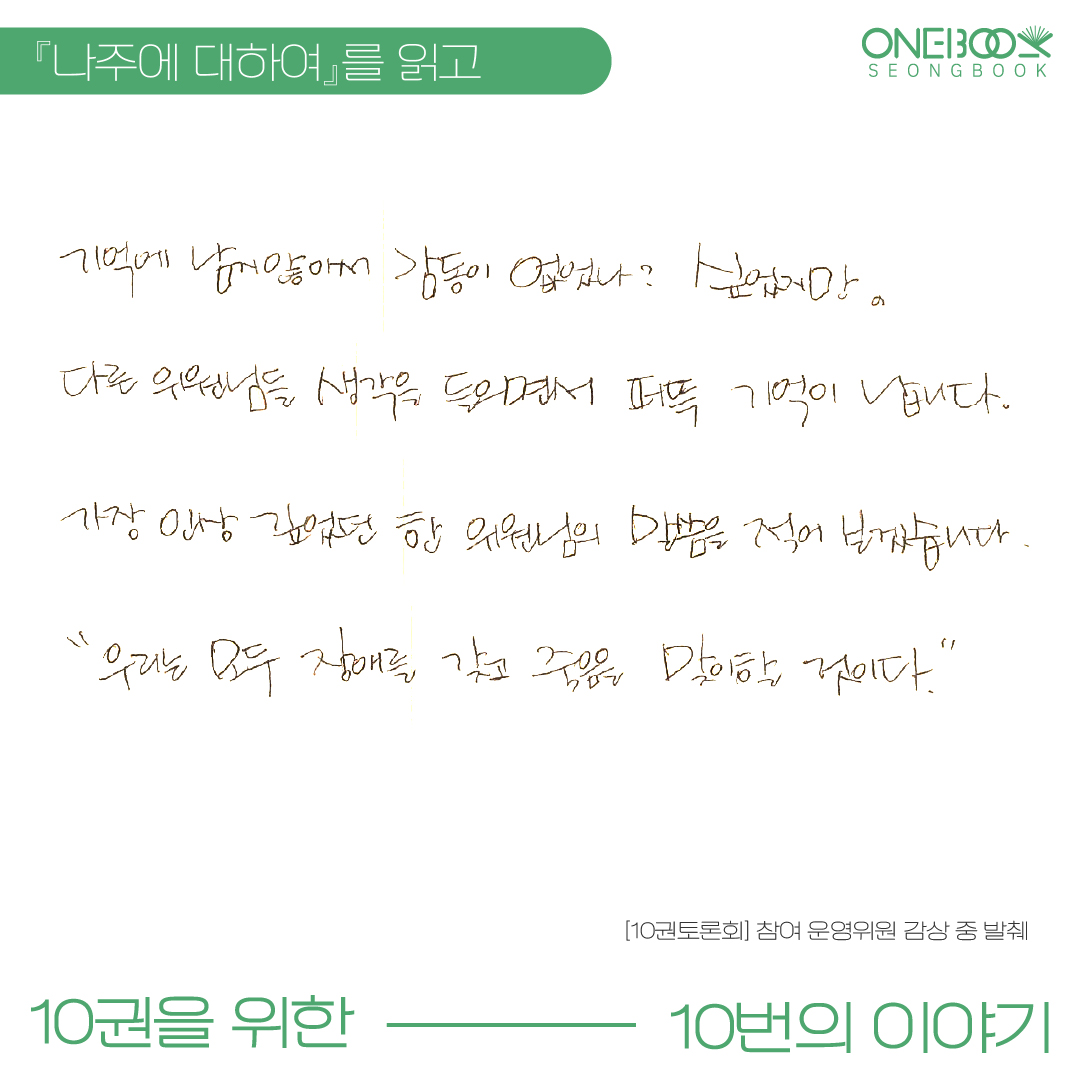 『나주에 대하여』를 읽고
ONEBOOK
SEONGBOOK
기억에 남지않아서 감동이 없었나? 싶었지만.
다른 위원님들 생각을 들으면서 퍼뜩 기억이 납니다.
가장 인상 깊었던 한 위원님의 말씀을 적어 보겠습니다.
"우리는 모두 장애를 갖고 죽음을 맞이할 것이다."
[10권토론회] 참여 운영위원 감상 중 발췌
10권을 위한 10번의 이야기